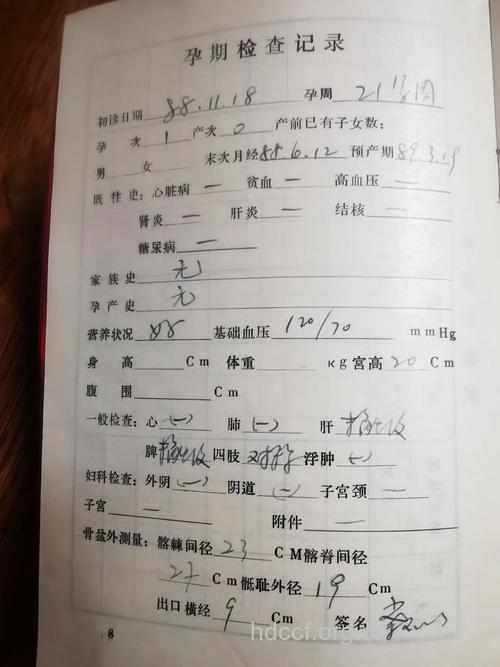 孕期检查记录
初诊日期 88.11.18 孕周 21 周
孕次 1 产次 0 产前已有子女数:
男 女 末次月经 88.6.12 预产期 89.3.19
既往史: 心脏病 — 贫血 — 高血压 —
肾炎 — 肝炎 — 结核 —
糖尿病 —
家族史 无
孕产史 无
营养状况 好 基础血压 120/70 mmHg
身高 Cm 体重 Kg 宫高 20 Cm
腹围 Cm
一般检查: 心 (-) 肺 (-) 肝
脾 四肢 对称 浮肿 (-)
妇科检查: 外阴 (-) 阴道 (-) 子宫颈 —
子宫 — 附件 —
骨盆外测量: 髂棘间径 23 CM 髂脊间径
27 Cm 骶耻外径 19 Cm
出口横经 9 Cm 签名
8
hdccf.org